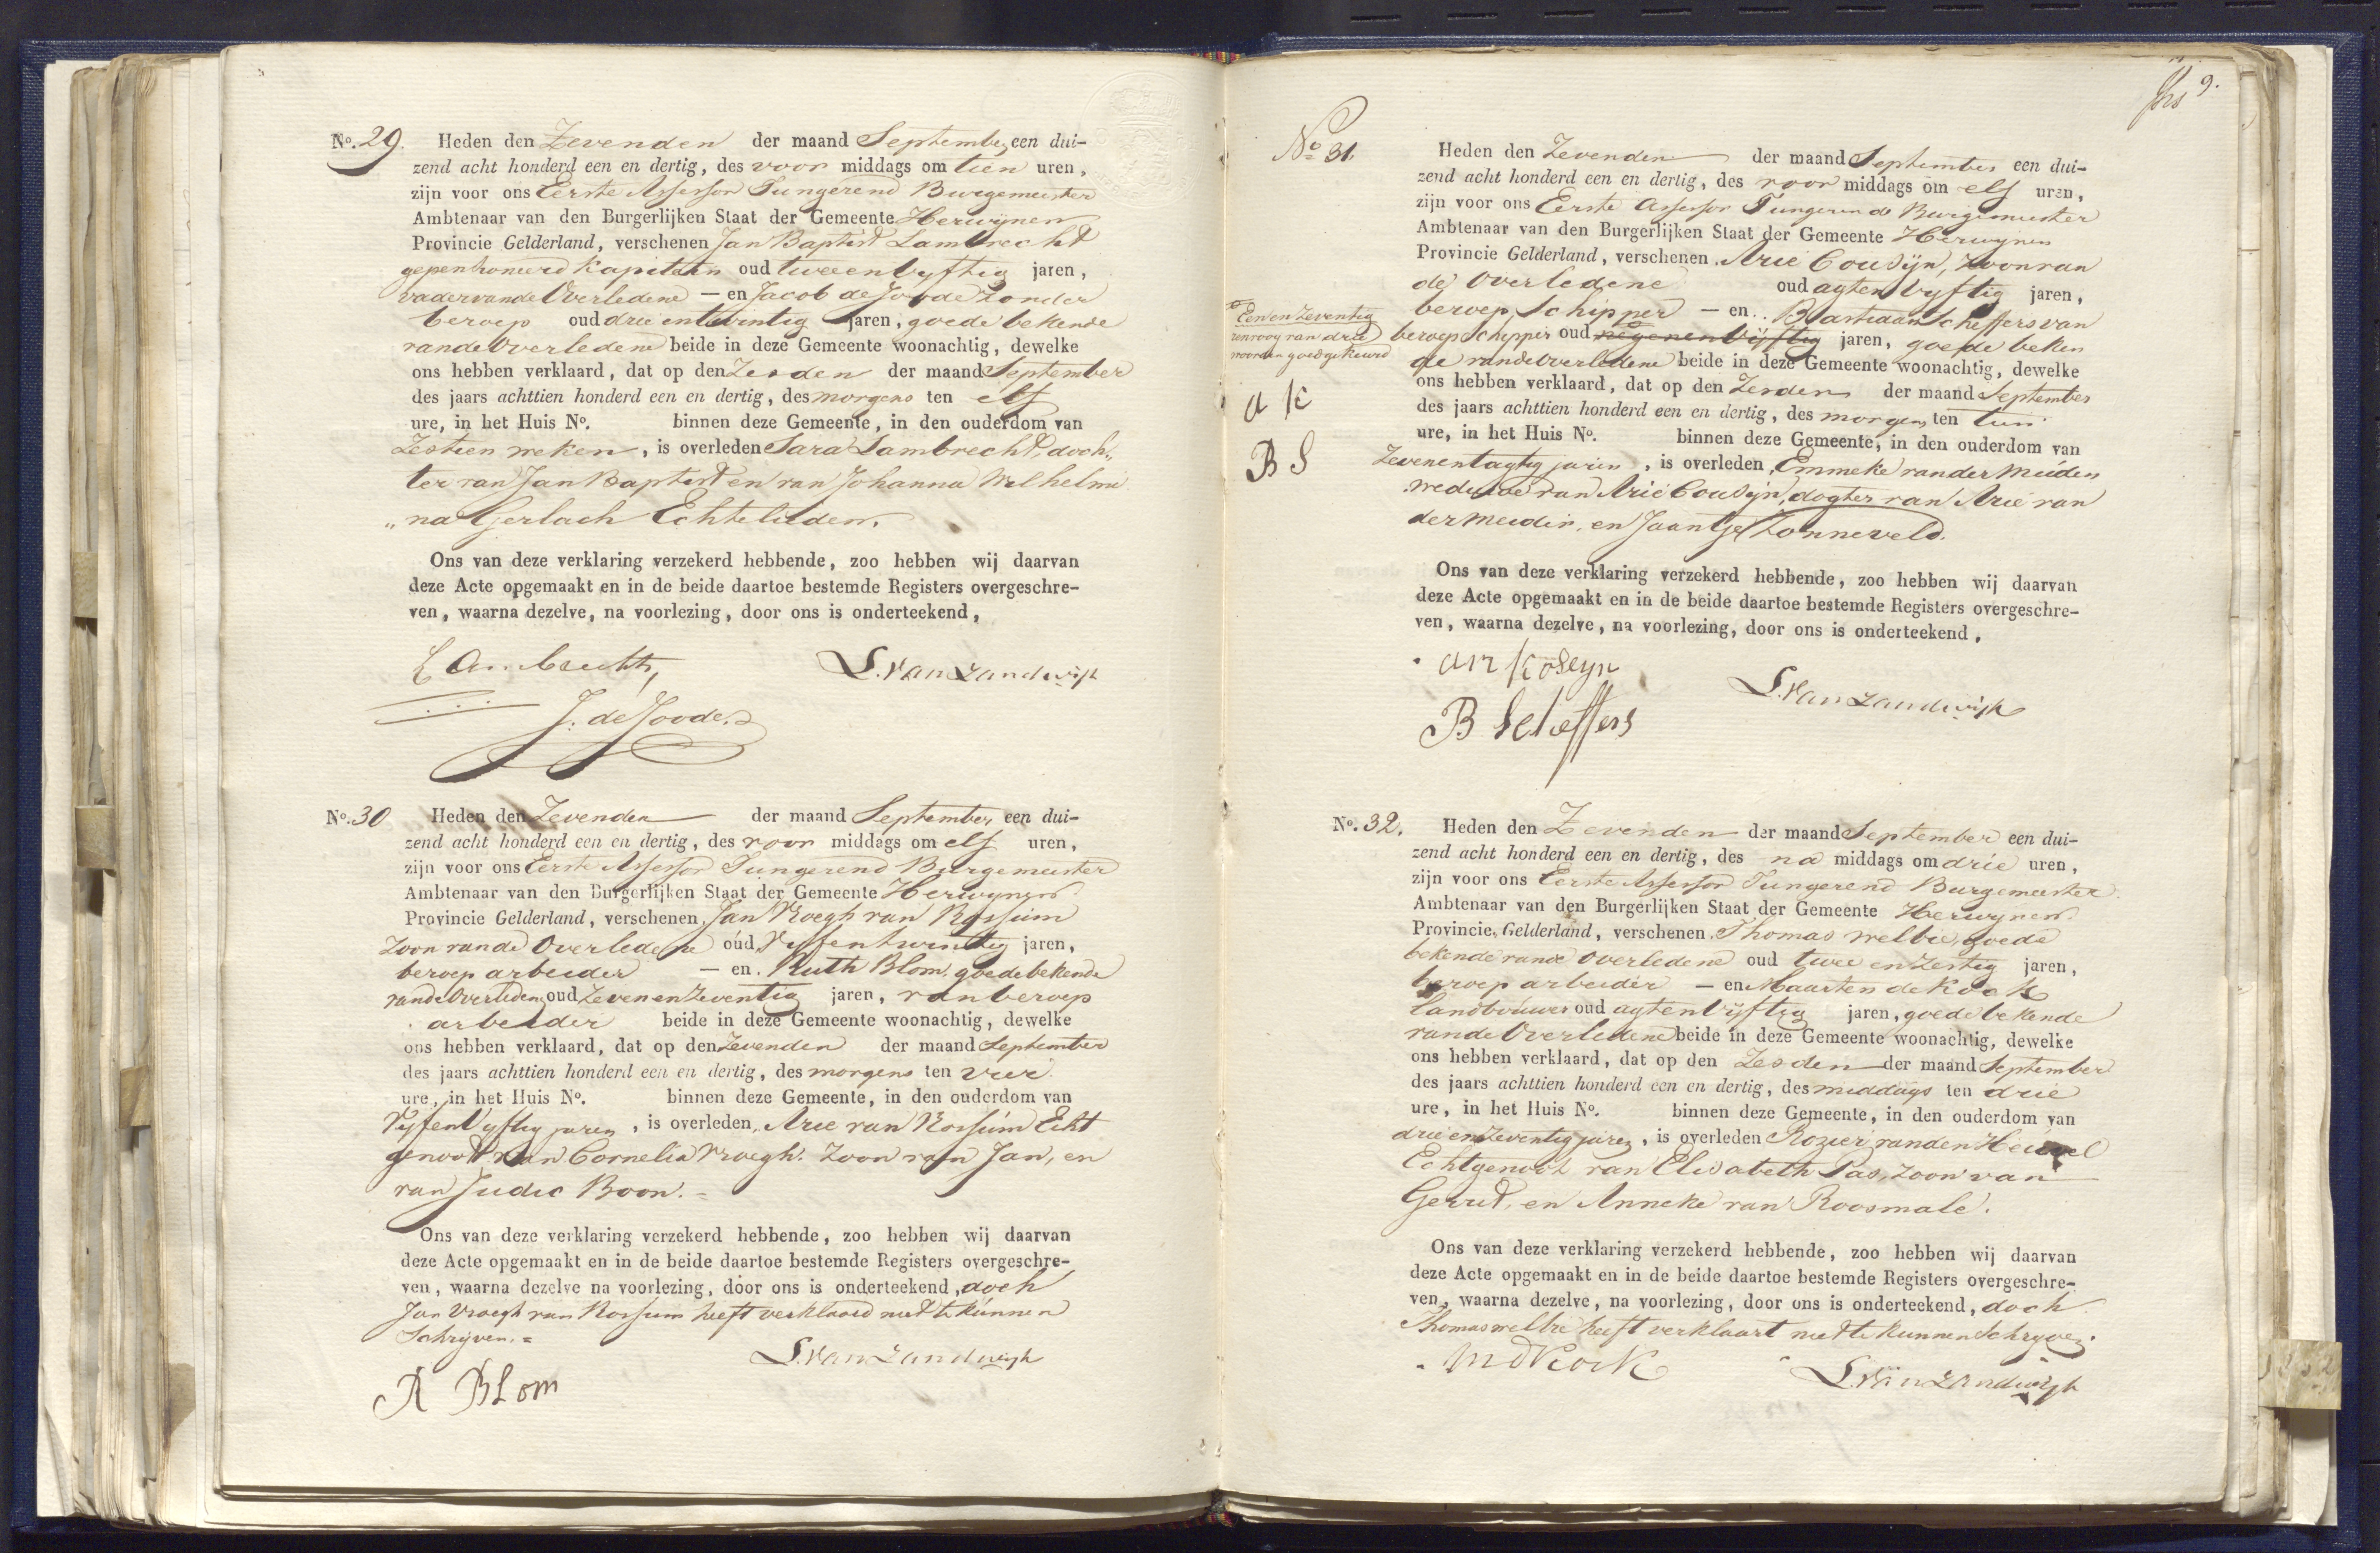 No. 29. Heden den Zevenden der maand September een dui-
zend acht honderd een en dertig, des voor middags om tien uren,
zijn voor ons Eerste Assessor Fungerend Burgemeester
Ambtenaar van den Burgerlijken Staat der Gemeente Herwijnen
Provincie Gelderland, verschenen Jan Baptist Lambrecht
gepensioneerd Kapitein oud tweeenvyftig jaren,
vader van de Overledene — en Jacob de Joode zonder
beroep oud drie entwintig jaren, goede bekende
van de Overledene beide in deze Gemeente woonachtig, dewelke
ons hebben verklaard, dat op den Zesden der maand September
des jaars achttien honderd een en dertig, des morgens ten elf
ure, in het Huis No. binnen deze Gemeente, in den ouderdom van
Zestien weken, is overleden Sara Lambrecht, doch„
ter van Jan Baptist en van Johanna Wilhelmi
„na Gerlach Echtelieden.
Ons van deze verklaring verzekerd hebbende, zoo hebben wij daarvan
deze Acte opgemaakt en in de beide daartoe bestemde Registers overgeschre-
ven, waarna dezelve, na voorlezing, door ons is onderteekend,
Lambrecht, L. van Zandwijk
J. de Joode.
No. 30 Heden den Zevenden der maand September een dui-
zend acht honderd een en dertig, des voor middags om elf uren,
zijn voor ons Eerste Assessor Fungerend Burgemeester
Ambtenaar van den Burgerlijken Staat der Gemeente Herwynen
Provincie Gelderland, verschenen Jan Vroegh van Rossum
Zoon van de Overledene oud Vyfentwintig jaren,
beroep arbeider — en Ruth Blom goede bekende
van de Overledene oud Zevenenzeventig jaren, van beroep
arbeider beide in deze Gemeente woonachtig, dewelke
ons hebben verklaard, dat op den Zevenden der maand September
des jaars achttien honderd een en dertig, des morgens ten vier
ure, in het Huis No. binnen deze Gemeente, in den ouderdom van
Vyfenvyftig jaren, is overleden Arie van Rossum Echt
genoot van Cornelia Vroegh. Zoon van Jan, en
van Judic Boon. =
Ons van deze verklaring verzekerd hebbende, zoo hebben wij daarvan
deze Acte opgemaakt en in de beide daartoe bestemde Registers overgeschre-
ven, waarna dezelve na voorlezing, door ons is onderteekend, doch
Jan Vroegh van Rossum heeft verklaard niet te kunnen
Schryven. =
L. van Zandwijk
R BLom
9.
No 31. Heden den Zevenden der maand September een dui-
zend acht honderd een en dertig, des voor middags om elf uren,
zijn voor ons Eerste Assessor Fungerende Burgemeester
Ambtenaar van den Burgerlijken Staat der Gemeente Herwynen
Provincie Gelderland, verschenen Arie Cousijn, zoon van
de Overledene oud agtenvyftig jaren,
beroep Schipper — en Bastiaan Scheffers van
beroep Schipper oud negenenvijftig jaren, goede beken
de van de Overledene beide in deze Gemeente woonachtig, dewelke
Eenen Zeventig
renvoy van drie
woorden goedgekeurd
a K
B S
ons hebben verklaard, dat op den Zesden der maand September
des jaars achttien honderd een en dertig, des morgens ten tien
ure, in het Huis No. binnen deze Gemeente, in den ouderdom van
Zevenentagtig jaren, is overleden Emmeke van der Meiden
weduwe van Arie Cousijn, dogter van Arie van
der Meiden, en Jaantje Zonneveld.
Ons van deze verklaring verzekerd hebbende, zoo hebben wij daarvan
deze Acte opgemaakt en in de beide daartoe bestemde Registers overgeschre-
ven, waarna dezelve, na voorlezing, door ons is onderteekend,
arz Koseyn
L. van Zandwijk
B Scheffers
No. 32. Heden den Zevenden der maand September een dui-
zend acht honderd een en dertig, des na middags om drie uren,
zijn voor ons Eerste Assessor Fungerend Burgemeester
Ambtenaar van den Burgerlijken Staat der Gemeente Herwynen
Provincie Gelderland, verschenen Thomas Welbie, goede
bekende van de Overledene oud twee en Zestig jaren,
beroep arbeider — en Maarten de Kock
landbouwer oud agtenvijftig jaren, goede bekende
van de Overledene beide in deze Gemeente woonachtig, dewelke
ons hebben verklaard, dat op den Zesden der maand September
des jaars achttien honderd een en dertig, des middags ten drie
ure, in het Huis No. binnen deze Gemeente, in den ouderdom van
drieenzeventig jaren, is overleden Rozier van den Heuvel
Echtgenoot van Elisabeth Pas, zoon van
Gerrit, en Anneke van Roosmale.
Ons van deze verklaring verzekerd hebbende, zoo hebben wij daarvan
deze Acte opgemaakt en in de beide daartoe bestemde Registers overgeschre-
ven, waarna dezelve, na voorlezing, door ons is onderteekend, doch
Thomas Welbie heeft verklaart niet te kunnen Schryven.
M D Kock L. van Zandwijk